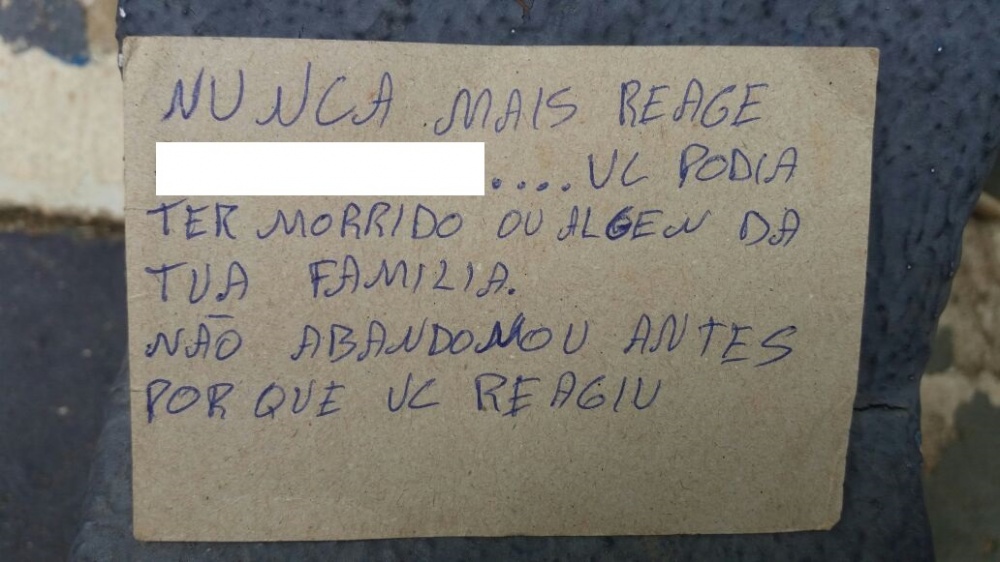 NUNCA MAIS REAGE
....VC PODIA
TER MORRIDO OU ALGEN DA
TUA FAMILIA.
NÃO ABANDONOU ANTES
POR QUE VC REAGIU